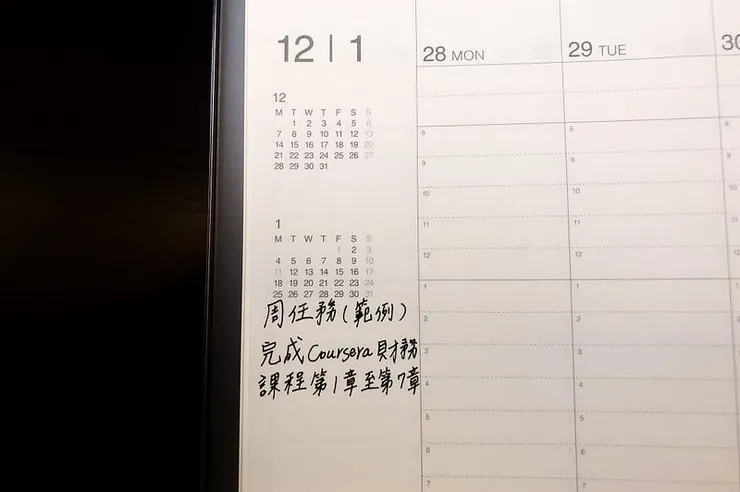 12 | 1
28 MON
29 TUE
30
12
M T W T F S S
1 2 3 4 5 6
7 8 9 10 11 12 13
14 15 16 17 18 19 20
21 22 23 24 25 26 27
28 29 30 31
1
M T W T F S S
1 2 3
4 5 6 7 8 9 10
11 12 13 14 15 16 17
18 19 20 21 22 23 24
25 26 27 28 29 30 31
周任務(範例)
完成Coursera財務
課程第1章至第7章
8
9
10
11
12
1
2
3
5
6
7
8
9
10
11
12
1
2
3
4
5
6
7